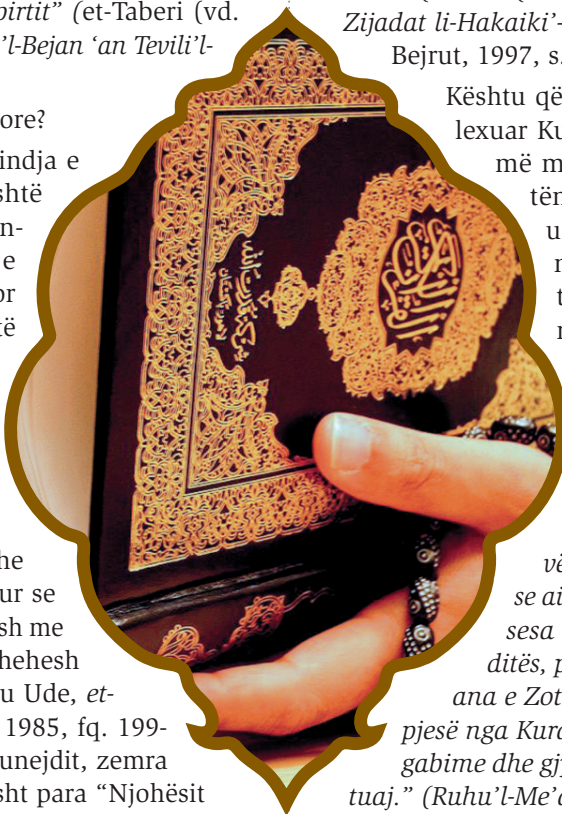 pirtit” (et-Taberi (vd.
’l-Bejan ‘an Tevili’l-
ore?
indja e
shtë
n-
e
or
të
he
ur se
sh me
hehesh
u Ude, et-
1985, fq. 199-
unejdit, zemra
sht para “Njohësit
القرآن الكريم
Zijadat li-Hakaiki’-
Bejrut, 1997, s.
Kështu që
lexuar Ku
më m
tën
u
t
vë
se ai
sesa
ditës, p
ana e Zot
pjesë nga Kura
gabime dhe gj
tuaj.” (Ruhu’l-Me’a